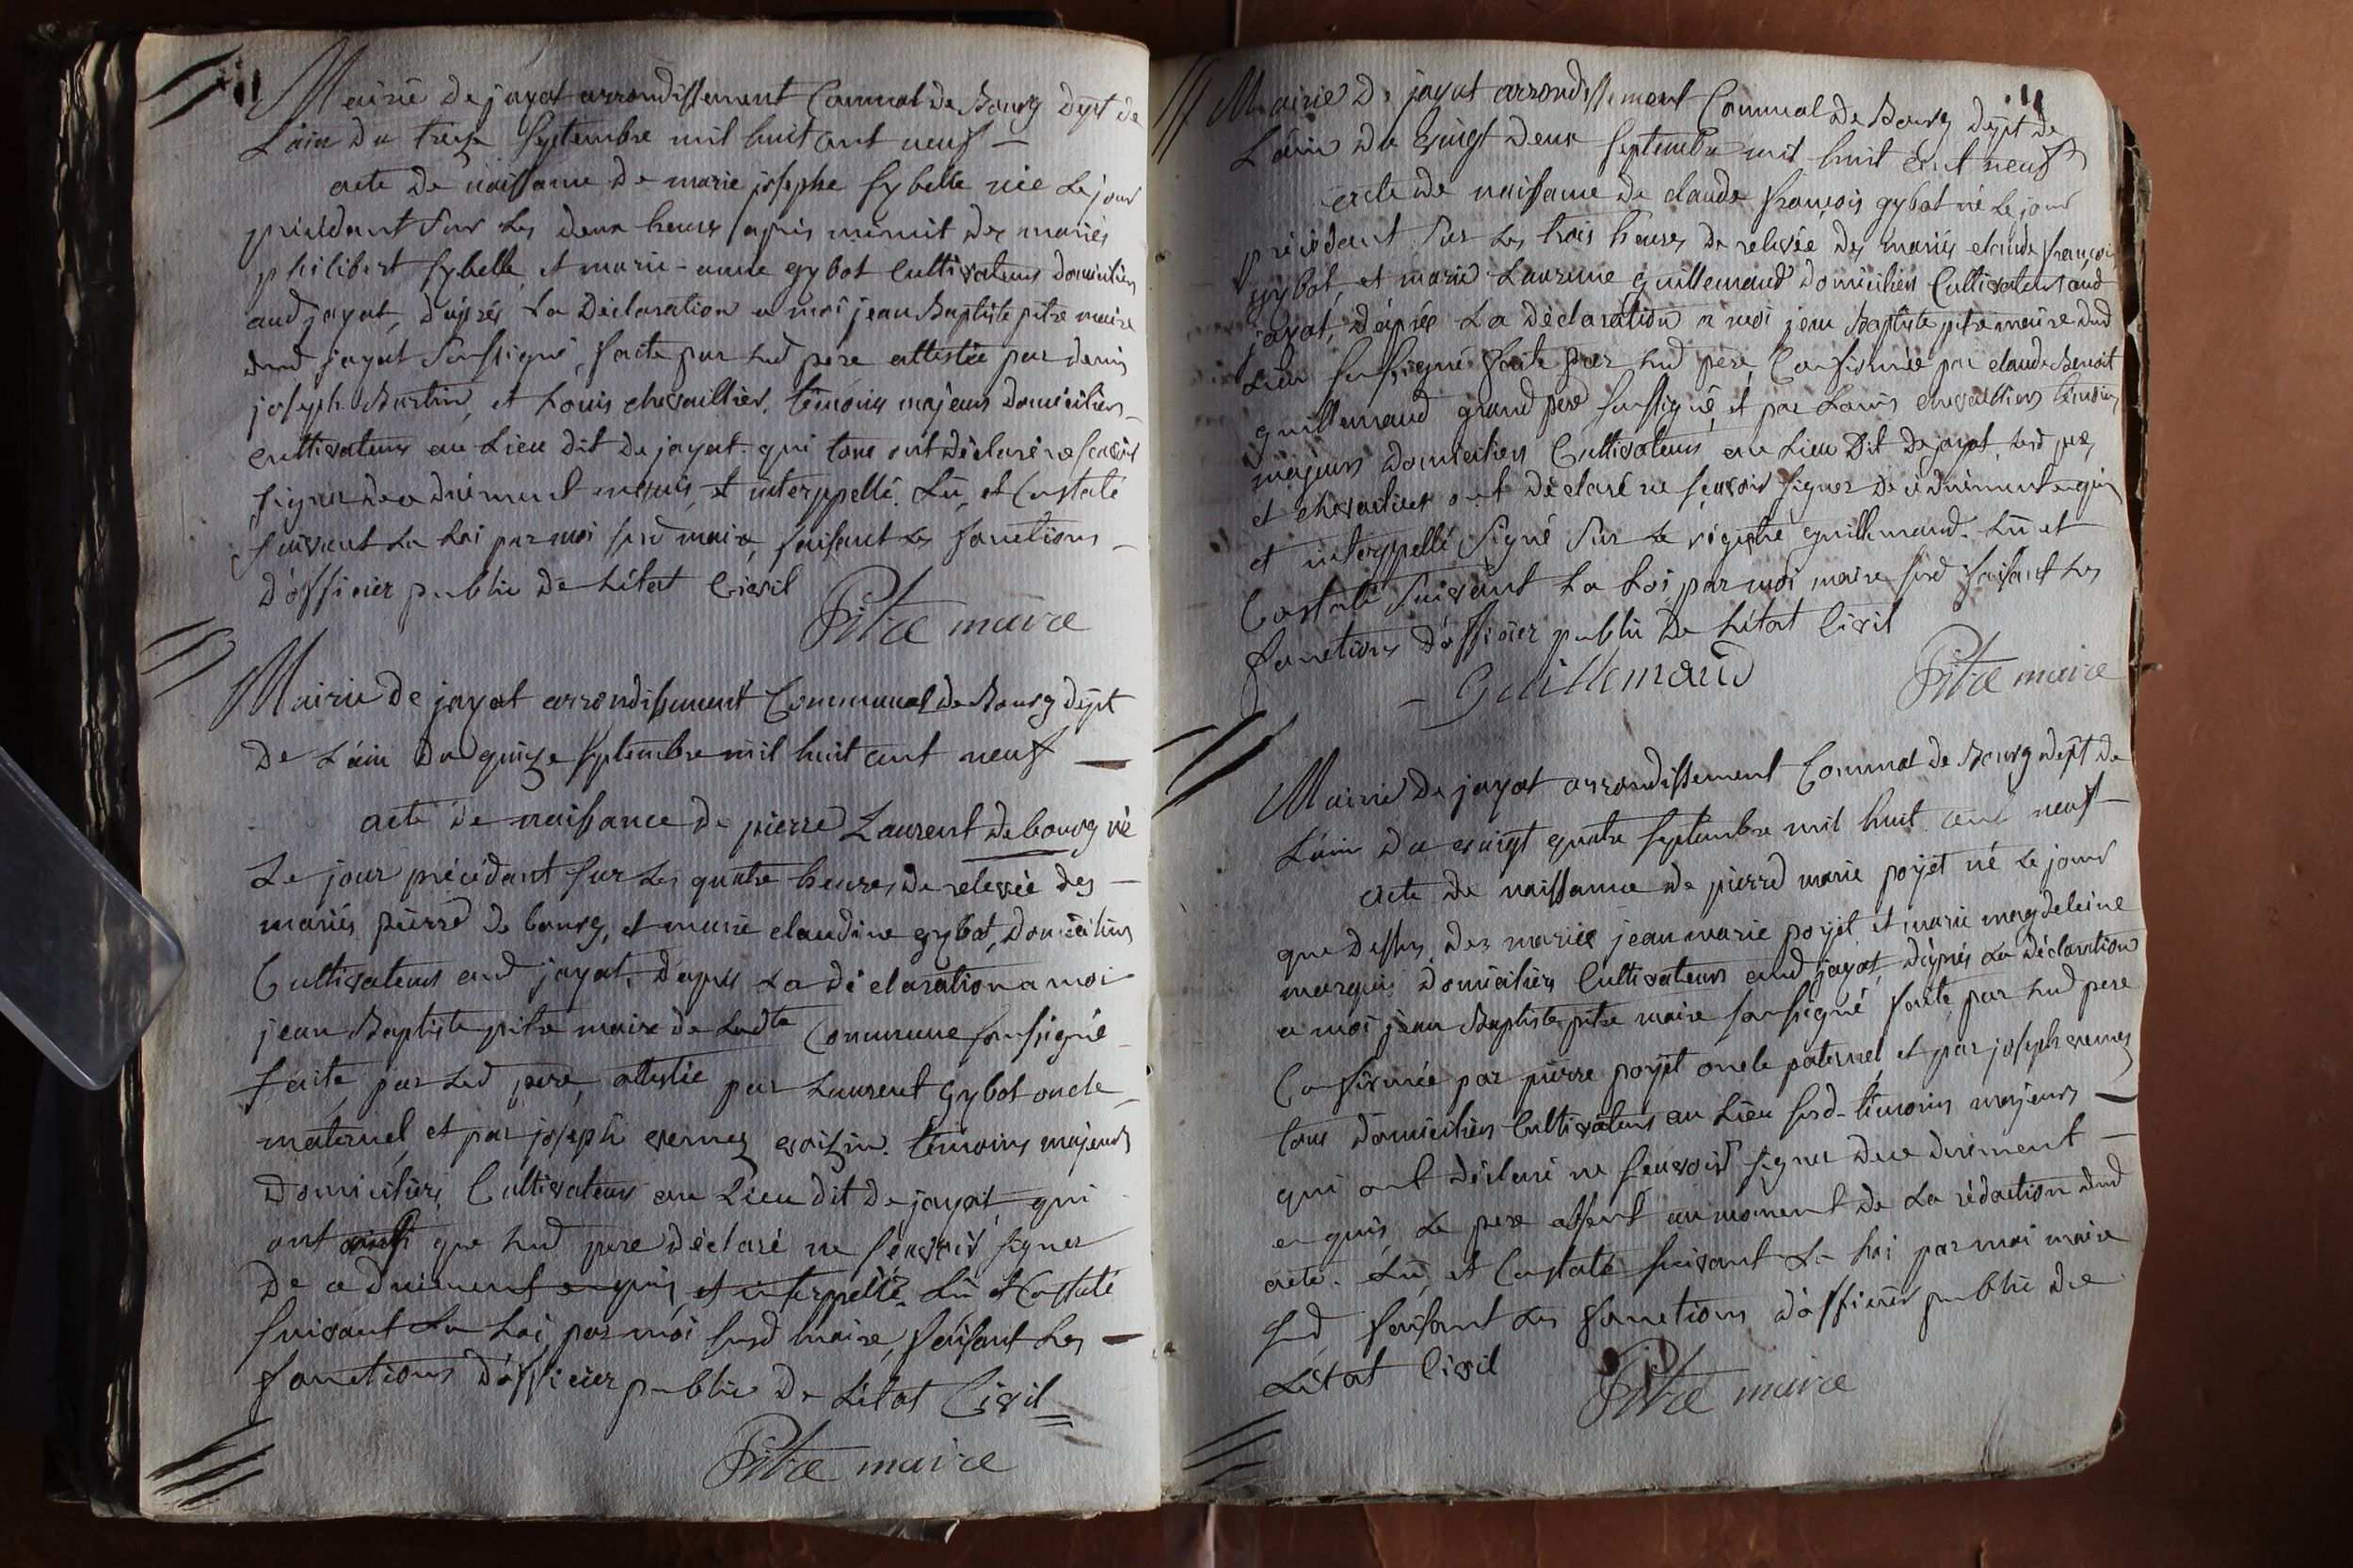 Mairie de jayat arrondissement Communal de Bourg dept de
L'ain du treize Septembre mil huit cent neuf —
acte de naissance de marie josephe sybelle née Le jour
précédant sur Les deux heures après minuit des mariés
philibert sybelle et marie-anne gybot Cultivateurs domiciliés
aud jayat, d'après La Déclaration a moi jean Baptiste pitre maire
dud jayat soussigné, faite par Led pere attestée par denis
joseph Burtin, et Louis chevaillier, témoins majeurs domiciliés
Cultivateurs au Lieu dit de jayat qui tous ont déclaré ne sçavoir
signer de ce duement enquis et interppellé. Lu et Constaté
suivant La Loi par moi susd maire, faisant Les fonctions —
d'officier public de L'état Civil
Pitre maire
Mairie de jayat arrondissement Communal de Bourg dept
de L'ain du quinze septembre mil huit cent neuf —
acte de naissance de pierre Laurent de bourg né
Le jour précédant sur Les quatre heures de relevée des —
mariés pierre de bourg, et marie claudine gybot, domiciliés
Cultivateurs aud jayat, d'après La déclaration a moi
jean Baptiste pitre maire de Ladte Commune soussigné
faite par Led pere, attestée par Laurent Gybot oncle
maternel, et par joseph vernes voisin. témoins majeurs
domiciliés Cultivateurs au Lieu dit de jayat qui
ont ainsi que Led pere déclaré ne sçavoir signer
de ce duement enquis et interppellé. Lu et Constaté
suivant La Loi par moi susd maire, faisant Les —
fonctions d'officier public de L'état Civil
Pitre maire
Mairie de jayat arrondissement Communal de Bourg dept de
L'ain du vingt deux septembre mil huit cent neuf
acte de naissance de claude françois gybot né Le jour
précédant sur Les trois heures de relevée des mariés claude françois
gybot, et marie Laurence guillemaud domiciliés Cultivateurs aud
jayat, d'après La déclaration a moi jean Baptiste pitre maire dud
Lieu soussigné faite par Led père, Confirmée par claude Benoit
guillemaud grand pere soussigné, et par Louis chevaillier témoins
majeurs domiciliés Cultivateurs au Lieu dit de jayat, Led pere
et chevaillier ont déclaré ne sçavoir signer de ce duement enquis
et interppellé, signé sur Le régistre guillemaud. Lu et
Constaté suivant La Loi par moi maire susd faisant Les
fonctions d'officier public de L'état Civil
Guillemaud
Pitre maire
Mairie de jayat arrondissement Communal de Bourg dept de
L'ain du vingt quatre septembre mil huit cent neuf —
acte de naissance de pierre marie poyet né Le jour
que dessus, des mariés jean marie poyet et marie magdeleine
marquis domiciliés Cultivateurs aud jayat, d'après La déclaration
a moi jean Baptiste pitre maire soussigné faite par Led pere
Confirmée par pierre poyet oncle paternel, et par joseph vernes
tous domiciliés Cultivateurs au Lieu susd. témoins majeurs —
qui ont déclaré ne sçavoir signer de ce duement —
enquis, Le pere absent au moment de La rédaction dud
acte. Lu, et Constaté suivant La Loi par moi maire
susd faisant Les fonctions d'officier public de
L'état Civil
Pitre maire